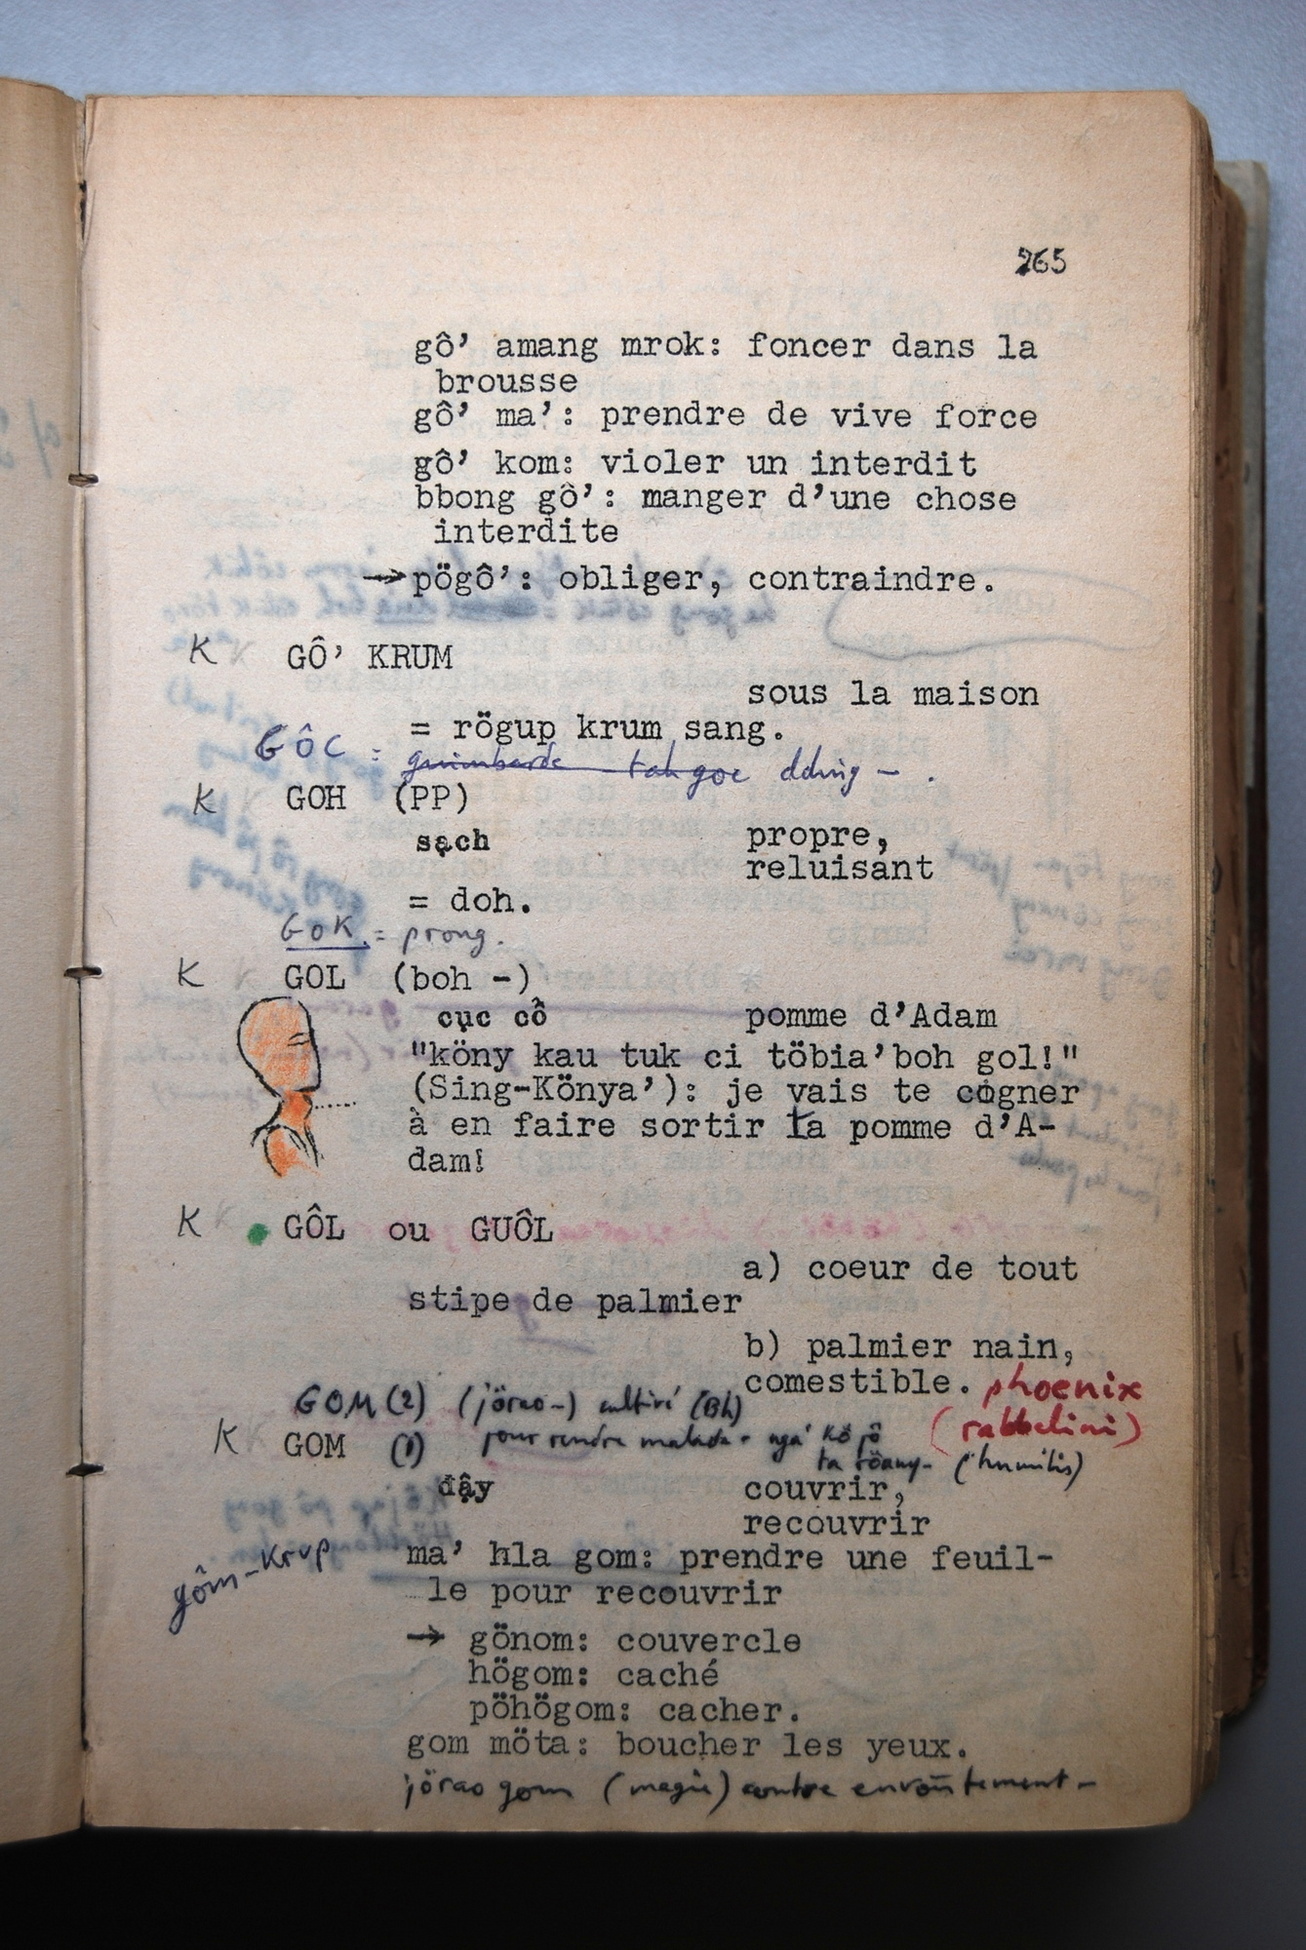 265
gô' amang mrok: foncer dans la
brousse
gô' ma': prendre de vive force
gô' kom: violer un interdit
bbong gô': manger d'une chose
interdite
→pögô': obliger, contraindre.
K GÔ' KRUM
sous la maison
= rögup krum sang.
GÔC = guimbarde tah goc dding - .
K GOH (PP)
sạch propre,
reluisant
= doh.
GOK = prong.
K GOL (boh -)
cục cổ pomme d'Adam
"köny kau tuk ci töbia'boh gol!"
(Sing-Könya'): je vais te cogner
à en faire sortir ta pomme d'A-
dam!
K GÔL ou GUÔL
a) coeur de tout
stipe de palmier
b) palmier nain,
comestible. phoenix
GOM (2) (jörao-) cultivé (Bh) (rabbelini)
K GOM (1) pour rendre malade
(humilis)
đậy couvrir,
recouvrir
gôm-krup
ma' hla gom: prendre une feuil-
le pour recouvrir
→ gönom: couvercle
högom: caché
pöhögom: cacher.
gom möta: boucher les yeux.
jörao gom (magie) contre envoûtement-